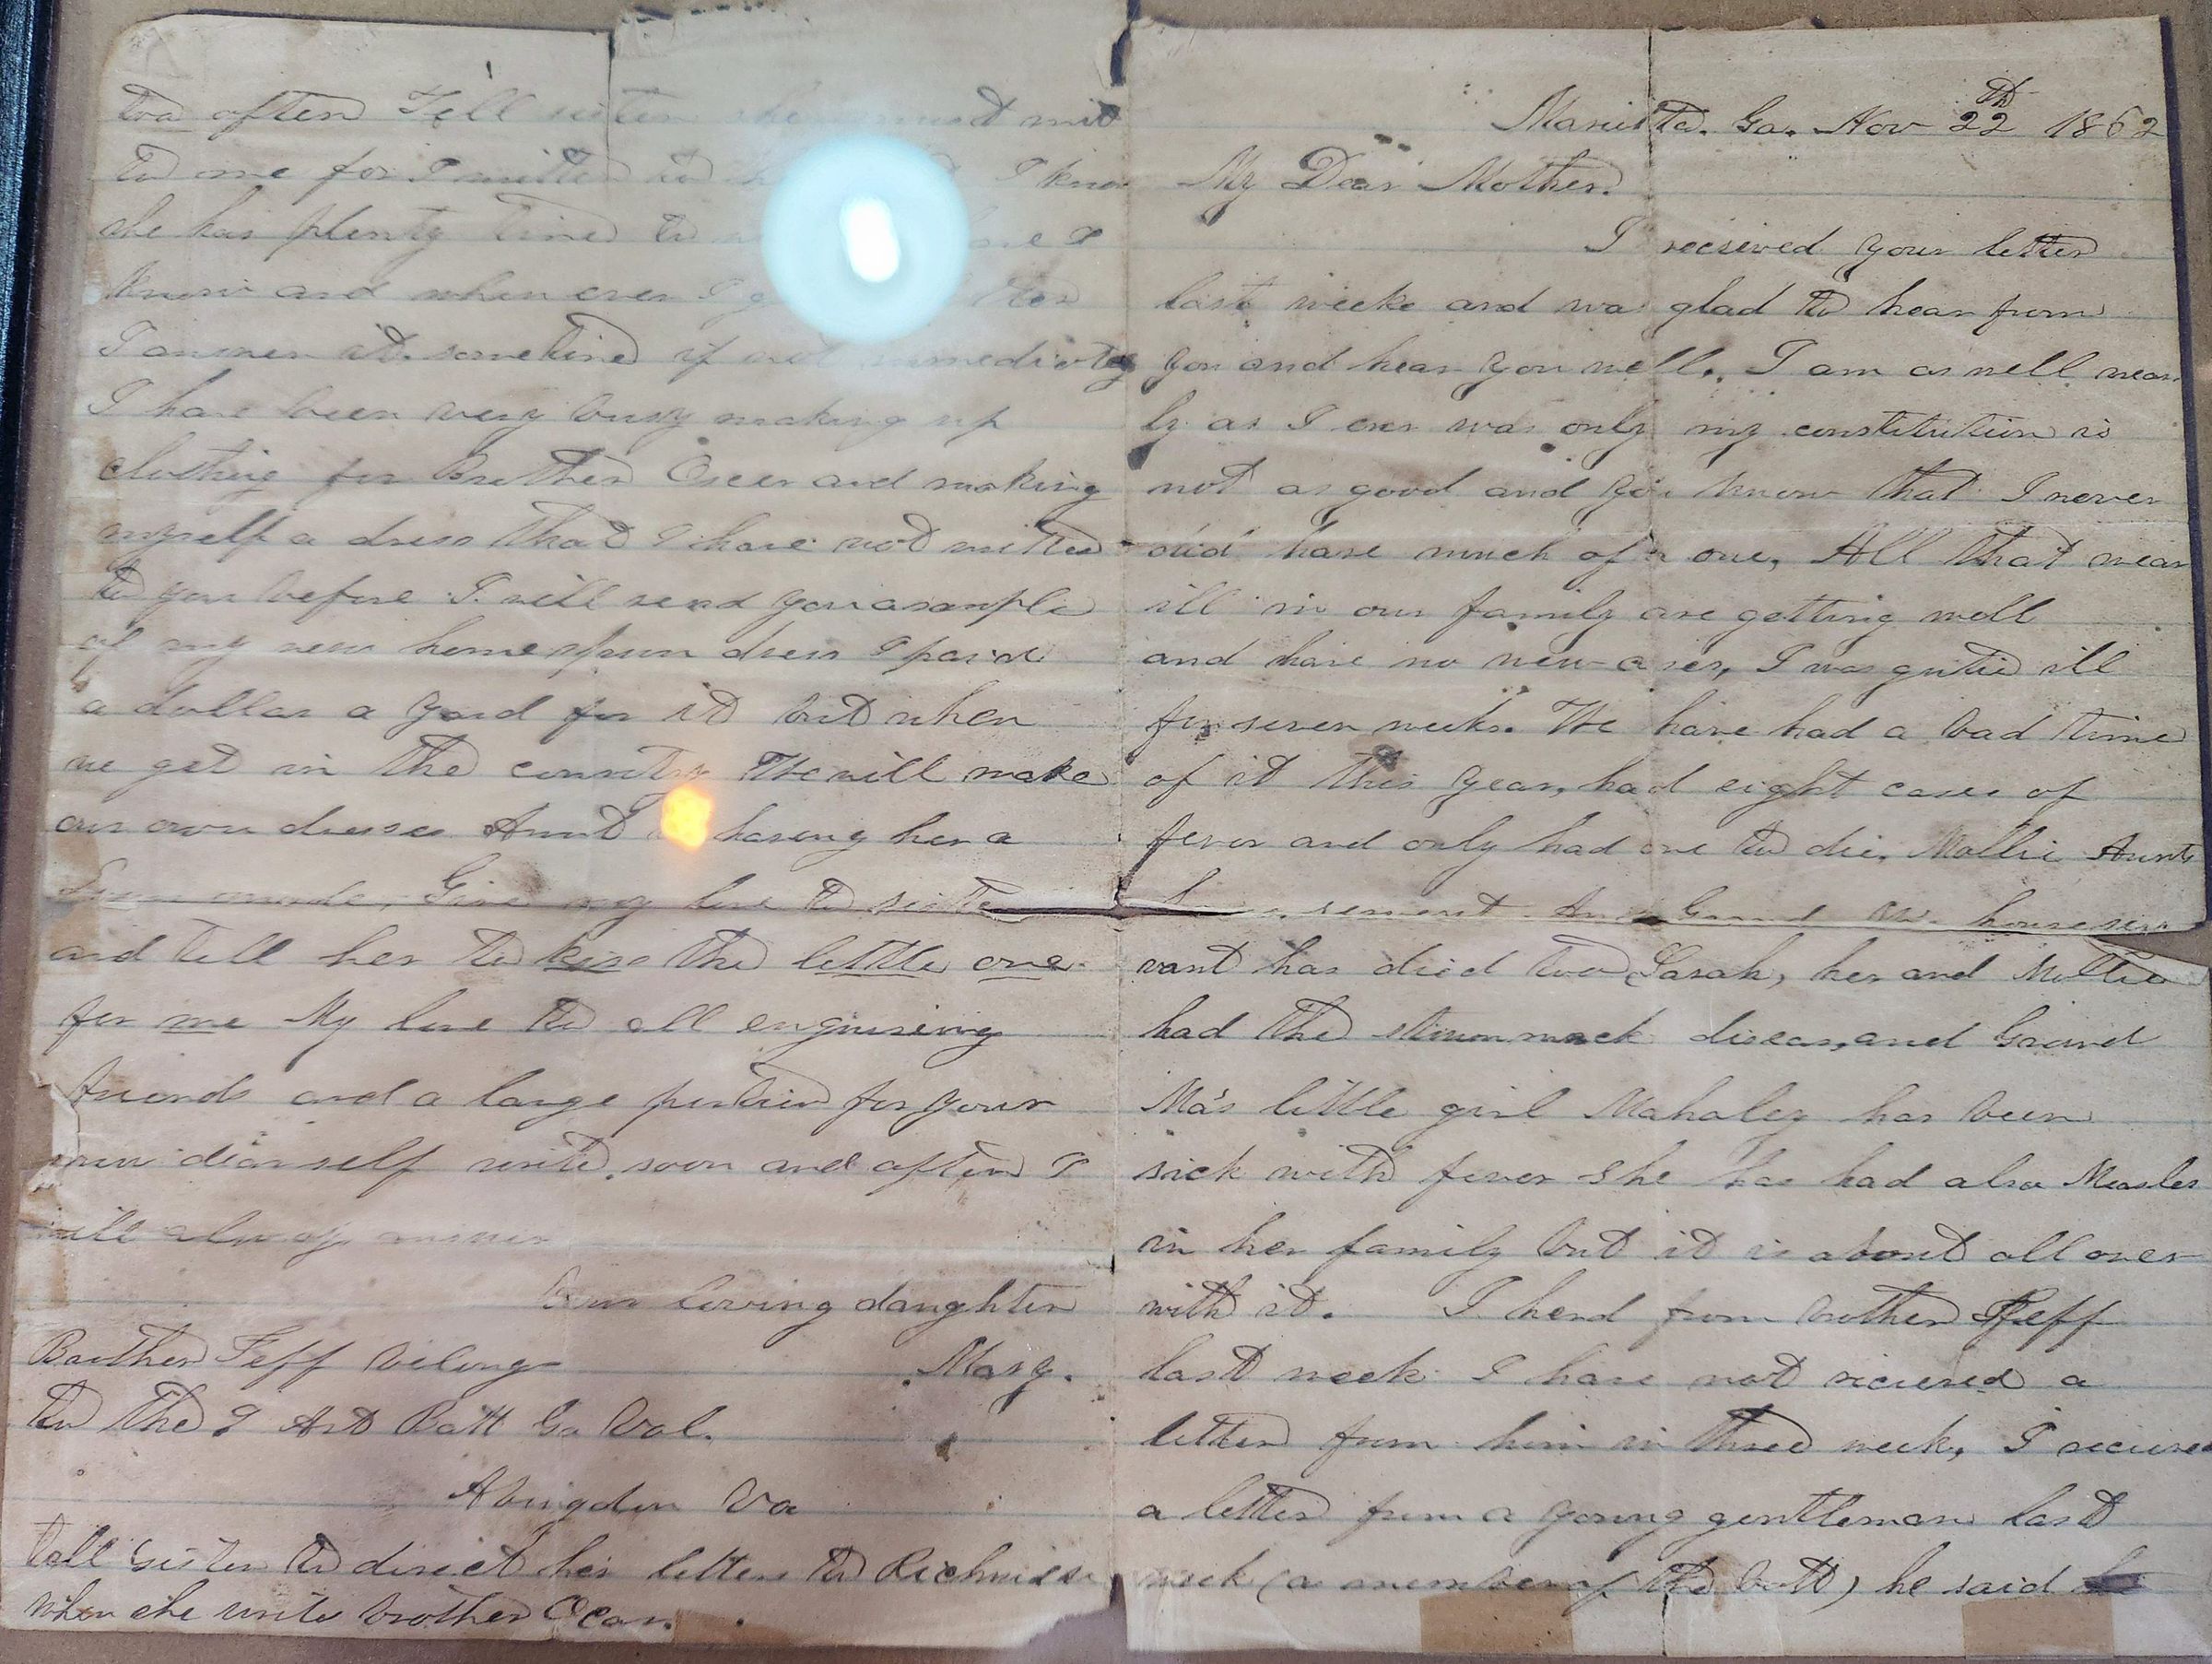 Marietta. Ga. Nov 22th 1862
My Dear Mother.
I recieved your letter
last weeke and was glad to hear from
you and hear you well. I am as well near
ly as I ever was only my constitution is
not as good and you know that I never
did have much of a one, All that wear
ill in our family are getting well
and have no new cases, I was quite ill
for seven weeks. We have had a bad time
of it this year, had eight cases of
fever and only had one to die, Mollie Aunts
servent. And Grand Ma. houseser
vant has died too Sarah, her and Mollie
had the stommack diseas, and Grand
Ma's little girl Mahaley has been
sick with fever she has had also Measles
in her family but it is about all over
with it. I herd from brother Jeff
last week I have not recieved a
letter from him in three week, I recieved
a letter from a young gentleman last
week (a member of the batt) he said
too often Tell sister she must writ
to me for I written to I know
she has plenty time to I
know and when ever I
I answer it sometime if not immediatey
I have been very busy making up
clothing for Brother Oscar and making
myself a dress that I have not written
to you before I will send you a sample
of my new homespun dress I paid
a dollar a yard for it but when
we get in the country We will make
our own dresses Aunt having her a
made, Give my love to sister
and tell her to kiss the little one
for me My love to all enquireing
friends and a large portion for your
own dear self write soon and often I
will alway answer
Your loving daughter
Mary.
Brother Jeff belong
to the 9 Art Batt Ga Vol.
Abingdon Va
tell sister to direct her letters to
when she write brother Ocar.